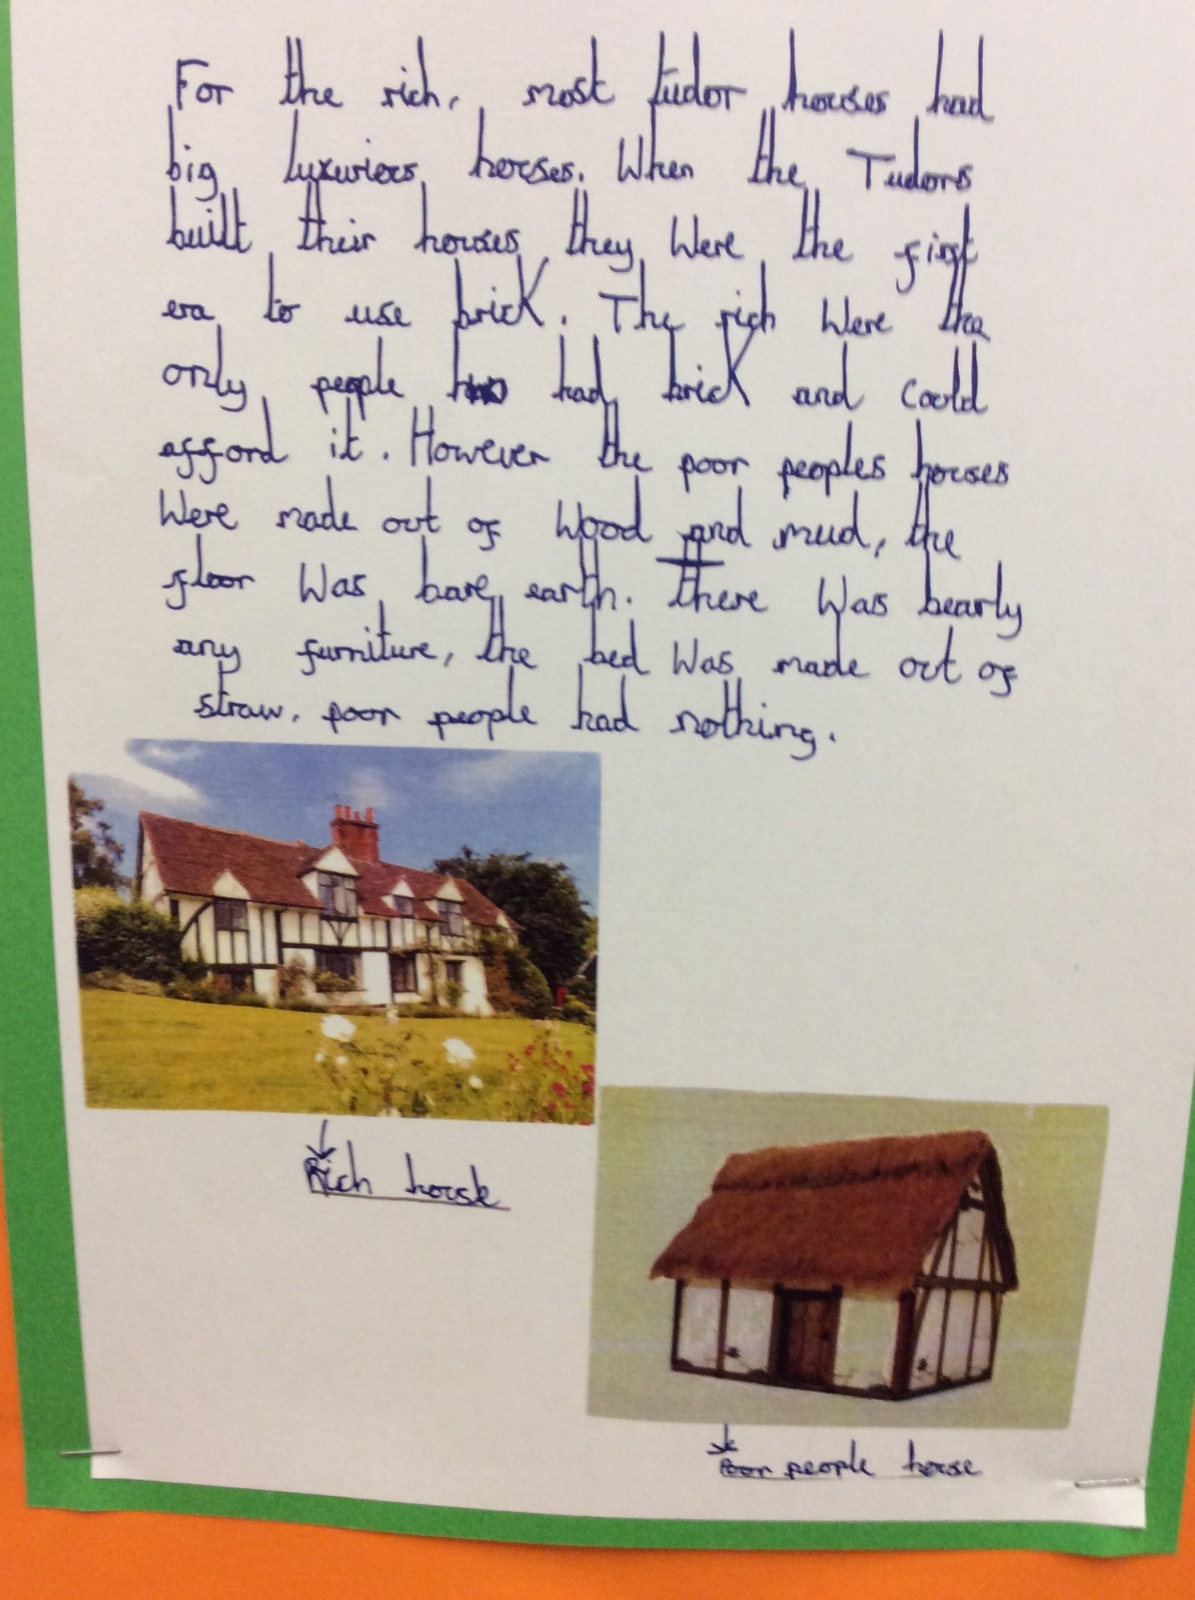 For the rich, most tudor houses had
big luxuriers houses. When the Tudors
built their houses they Were the first
era to use brick. The rich Were the
only people had brick and could
afford it. However the poor peoples houses
Were made out of Wood and mud, the
floor Was bare earth. There Was bearly
any furniture, the bed Was made out of
straw. poor people had nothing.
Rich house
Poor people house